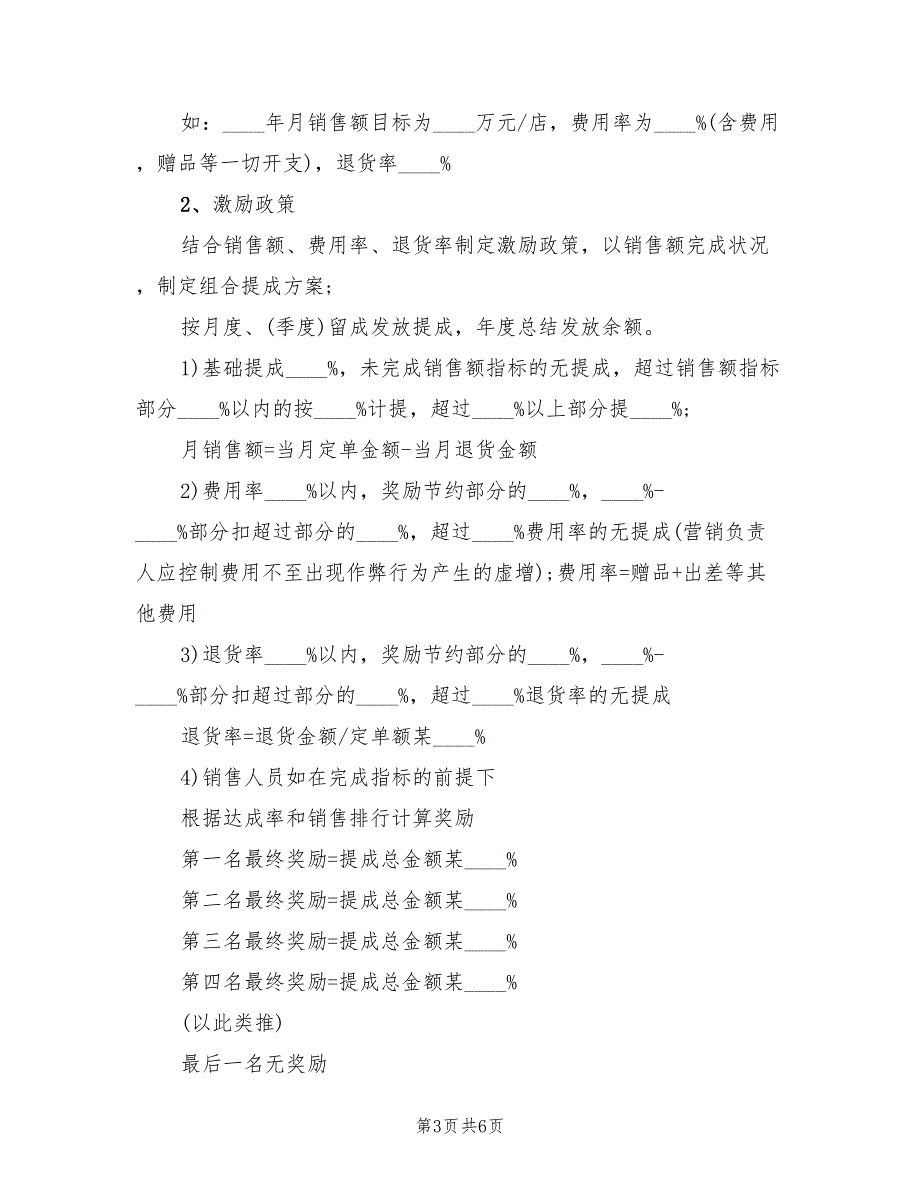 如：____年月销售额目标为____万元/店，费用率为____%(含费用
，赠品等一切开支)，退货率____%
2、激励政策
结合销售额、费用率、退货率制定激励政策，以销售额完成状况
，制定组合提成方案;
按月度、(季度)留成发放提成，年度总结发放余额。
1)基础提成____%，未完成销售额指标的无提成，超过销售额指标
部分____%以内的按____%计提，超过____%以上部分提____%;
月销售额=当月定单金额-当月退货金额
2)费用率____%以内，奖励节约部分的____%，____%-
____%部分扣超过部分的____%，超过____%费用率的无提成(营销负责
人应控制费用不至出现作弊行为产生的虚增);费用率=赠品+出差等其
他费用
3)退货率____%以内，奖励节约部分的____%，____%-
____%部分扣超过部分的____%，超过____%退货率的无提成
退货率=退货金额/定单额某____%
4)销售人员如在完成指标的前提下
根据达成率和销售排行计算奖励
第一名最终奖励=提成总金额某____%
第二名最终奖励=提成总金额某____%
第三名最终奖励=提成总金额某____%
第四名最终奖励=提成总金额某____%
(以此类推)
最后一名无奖励
第3页共6页